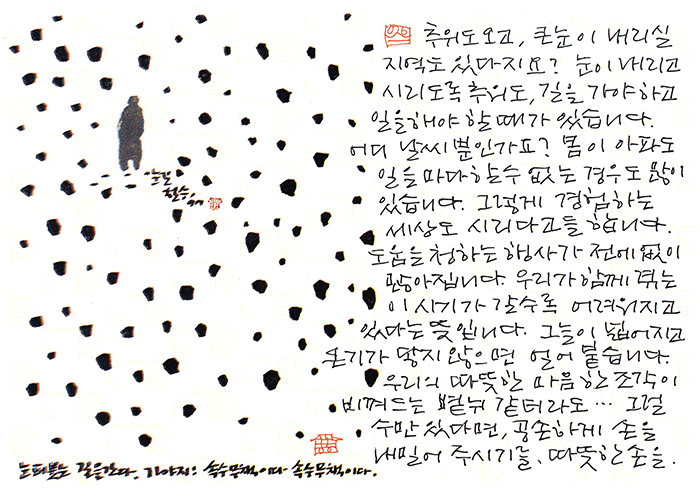 추위도 오고, 큰눈이 내리실
지역도 있다지요? 눈이 내리고
시리도록 추워도, 길을 가야하고
일을 해야 할 때가 있습니다.
어디 날씨 뿐인가요? 몸이 아파도
일을 마다할 수 없는 경우도 많이
있습니다. 그렇게 경험하는
세상도 시리다고들 합니다.
도움을 청하는 행사가 전에 없이
많아집니다. 우리가 함께 겪는
이 시기가 갈수록 어려워지고
있다는 뜻입니다. 그늘이 넓어지고
온기가 닿지 않으면 얼어 붙습니다.
우리의 따뜻한 마음 한 조각이
비껴드는 볕뉘 같더라도… 그럴
수만 있다면, 공손하게 손을
내밀어 주시기를, 따뜻한 손을.
눈 퍼붓는 길을 간다. 가야지! 속수무책이다 속수무책이다.